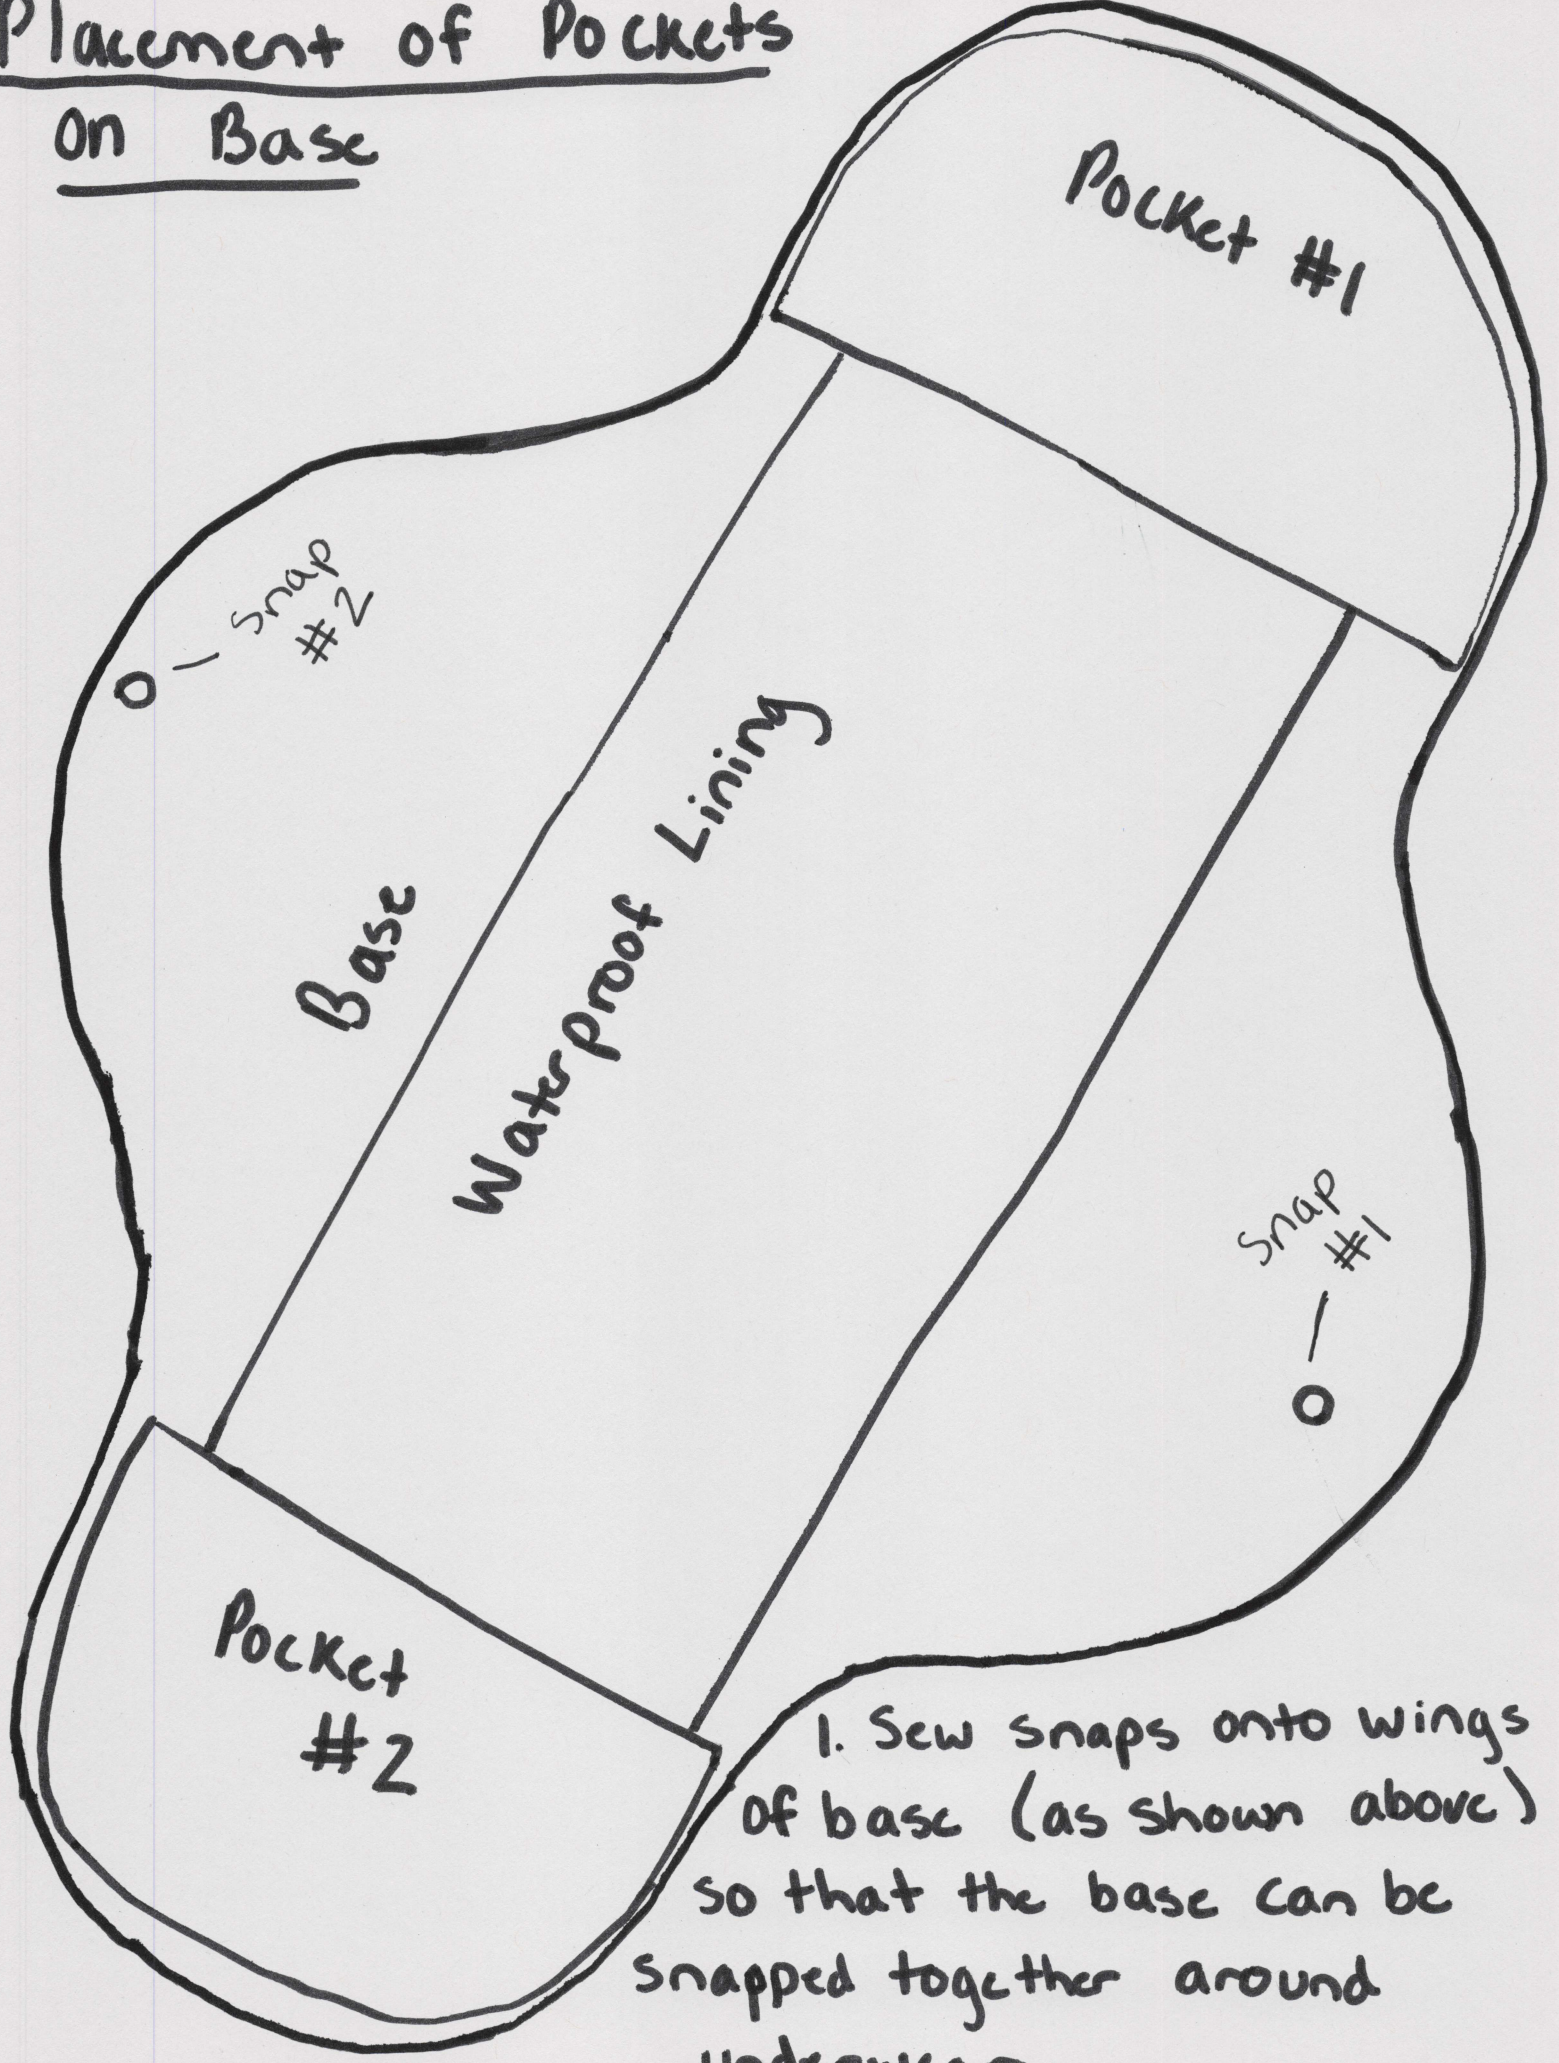 Placement of Pockets
on Base
Pocket #1
Snap
#2
Waterproof Lining
Base
Snap
#1
Pocket
#2
1. Sew snaps onto wings
of base (as shown above)
so that the base can be
snapped together around
underwear